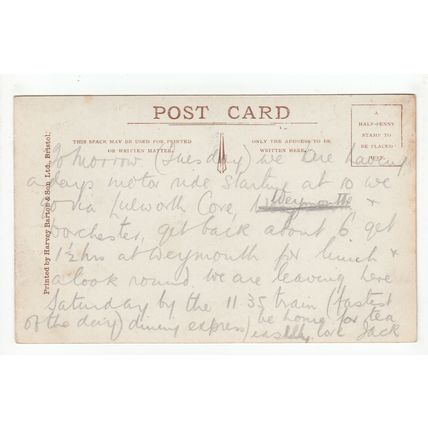 POST CARD
THIS SPACE MAY BE USED FOR PRINTED
OR WRITTEN MATTER.
ONLY THE ADDRESS TO BE
WRITTEN HERE.
A
HALF-PENNY
STAMP TO
BE PLACED
HERE
Printed by Harvey Barton & Son Ltd., Bristol.
Tomorrow (Tuesday) we are having
a days motor ride starting at 10 we
go via Lulworth Cove, Weymouth &
Dorchester, get back about 6, get
1½ hrs at Weymouth for lunch &
a look round. We are leaving here
Saturday by the 11.35 train (fastest
of the day) dining express) be home for tea
easily. Love Jack